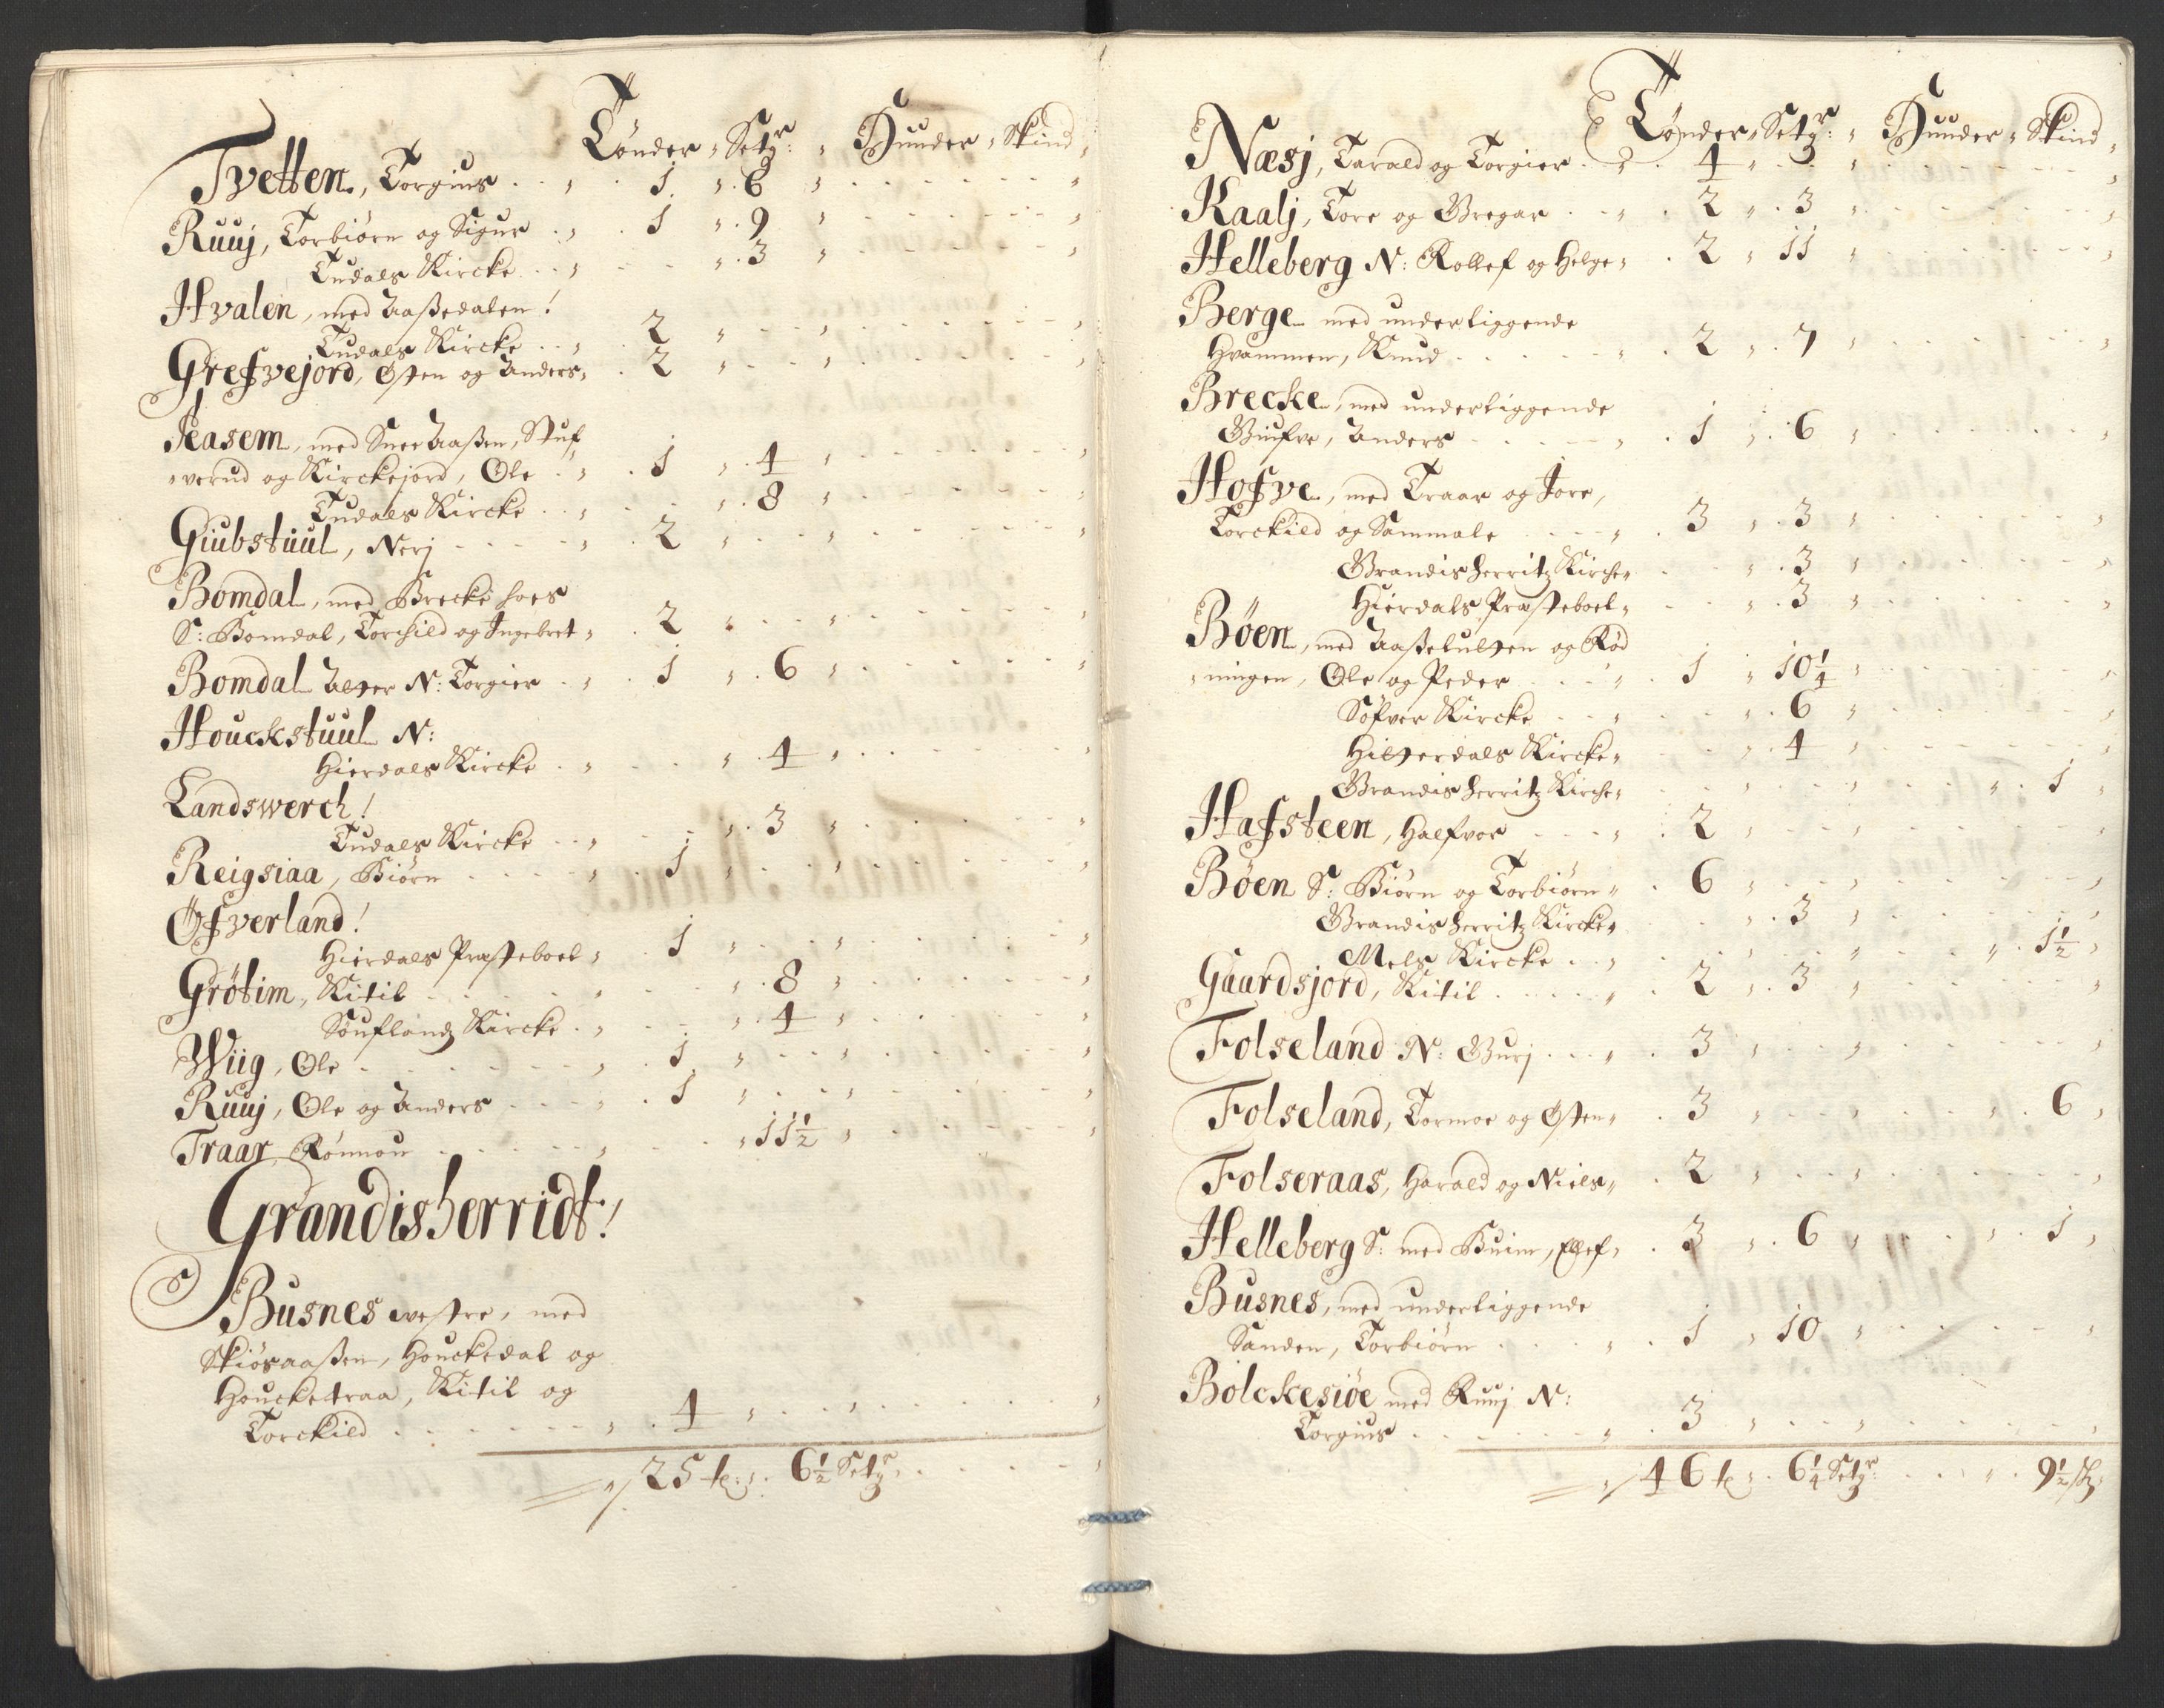 Tønder, Setgr: Huuder, Skind,
Tvetten, Torgius . . 1 . 6
Ruuj, Torbiørn og Sigur . . 1 . 9
Tudals Kircke . . 3
Hvalen, med Aaßedalen!
Tudals Kircke . . 2
Grefvejord, Østen og Anders, . 2
Jeasem, med Snee Aaßen, Stuf,
,verud og Kirckejord, Ole . . 1 . 4
Tudals Kircke . . 8
Giubstuul, Nerj . . 2
Bomdal, med Brecke hoes
S: Bomdal, Torchild og Ingebret, . 2
Bomdal Alger N: Torgier . . 1 . 6
Houckstuul N:
Hierdals Kircke . . 4
Landswerch!
Tudals Kircke . . 3
Reigsiaa, Biørn . . 1
Øfverland!
Hierdals Præsteboel, . 1
Grøtim, Kitil . . 8
Souflandz Kircke . . 4
Wiig, Ole . . 1
Ruuj, Ole og Anders . . 1
Traar, Rønnou . . 11½
Grandisherridt!
Busnes westre, med
Skiøsaaßen, Houckedal og
Houcketraa, Kitil og
Torckild . . 4
25 t: 6½ Setgr.
Tønder, Setgr: Huuder, Skind,
Næsj, Tarald og Torgier . . 4
Kaalj, Tore og Gregar . . 2 . 3
Helleberg N: Rollef og Helge, . 2 . 11
Berge med underliggende
Hvammen, Knud . . 2 . 7
Brecke, med underliggende
Giufve, Anders . . 1 . 6
Hofve, med Traar og Jore,
Torckild og Sammale . . 3 . 3
Grandisherritz Kirche, . 3
Hierdals Præsteboel, . 3
Bøen, med Aaßetulgen og Rød
,ningen, Ole og Peder . . 1 . 10¼
Søfver Kircke . . 6
Hilgerdals Kircke, . 4
Grandisherritz Kirche, . 1
Hafsteen, Halfvor . . 2
Bøen S: Biørn og Torbiørn, . 6
Grandisherritz Kircke, . 3
Mels Kircke . . 1½
Gaardsjord, Kitil . . 2 . 3
Folseland N: Gurj . . 3
Folseland, Tormoe og Østen, . 3 . 6
Folseraas, Harald og Niels, . 2
Helleberg S: med Buim, Ellef, . 3 . 6 . 1
Busnes, med underliggende
Sanden, Torbiørn . . 1 . 10
Bolckesiøe med Ruuj N:
Torgius . . 3
46 t: 6¼ Setgr: 9½ sk: